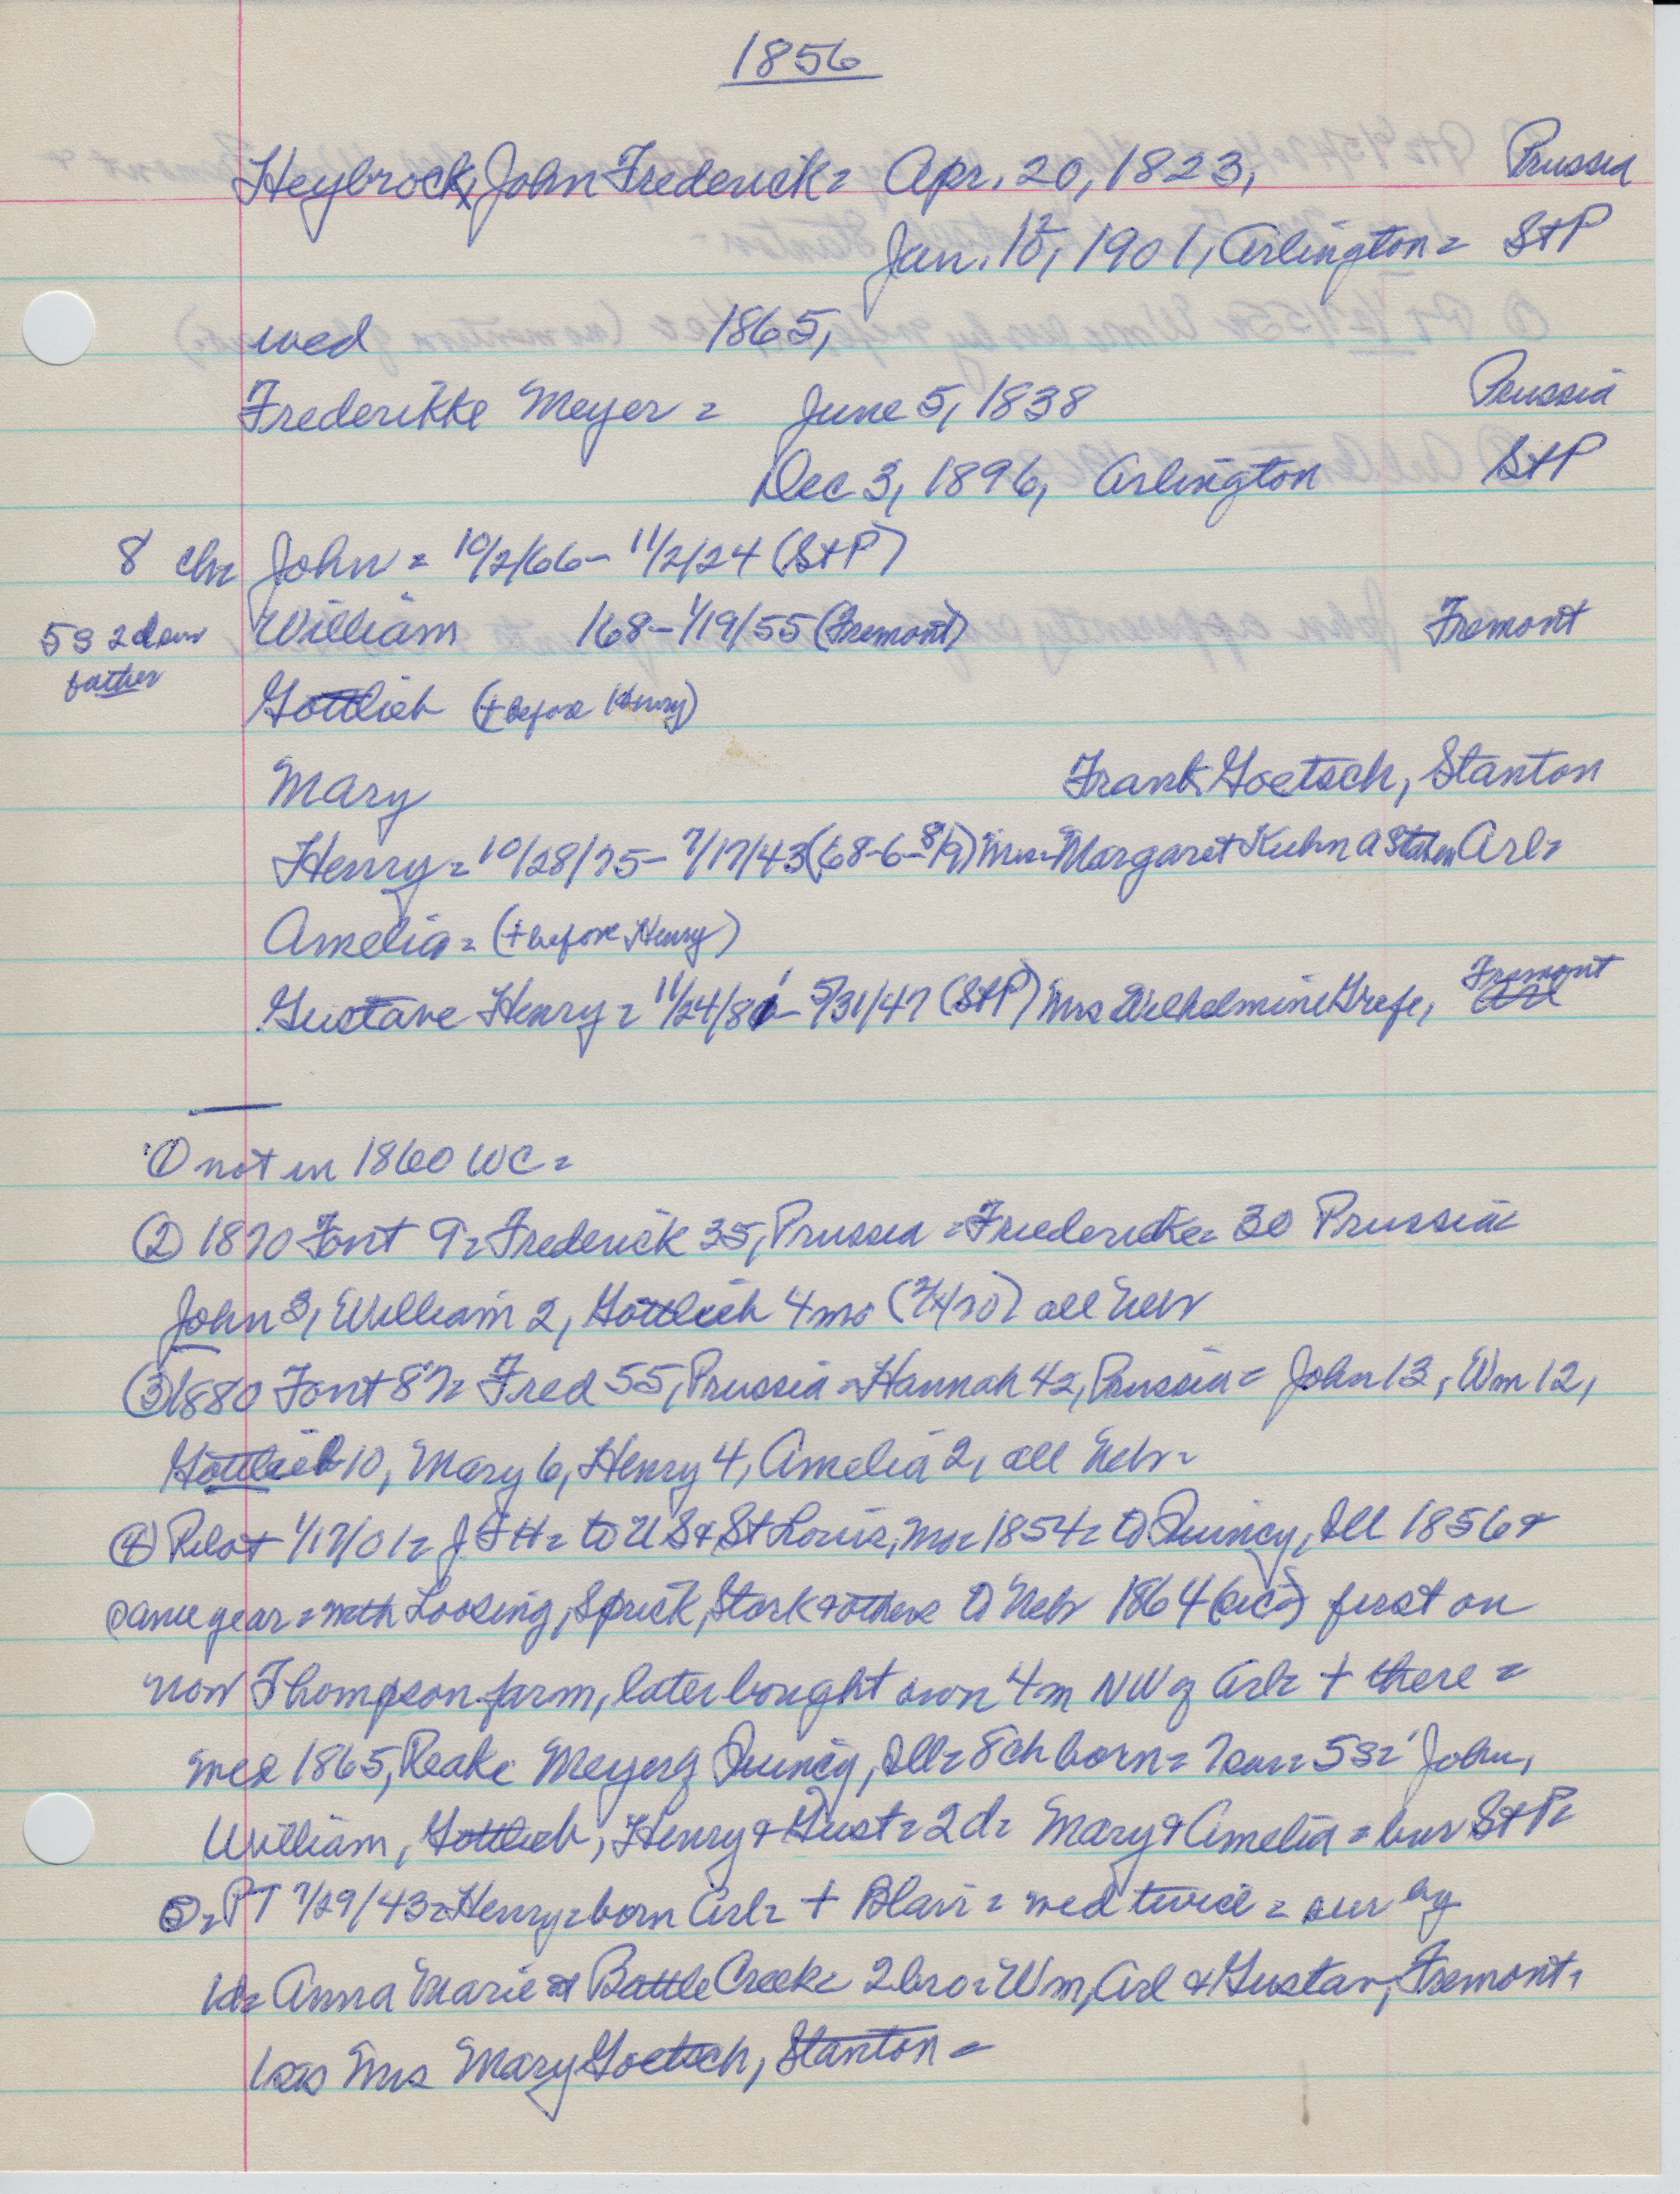 1856
Heybrock, John Frederick = Apr. 20, 1823, Prussia
Jan. 12, 1901, Arlington = St P
wed 1865,
Frederikke Meyer = June 5, 1838 Prussia
Dec 3, 1896, Arlington St P
8 ch= John = 10/2/66 - 11/2/24 (St P)
5s 2dau William /68 - 1/19/55 (Fremont) Fremont
father
Gottlieb (+ before Henry)
Mary Frank Goetsch, Stanton
Henry = 10/28/75 - 7/17/43 (68-6-8/9) Mrs. Margaret Kuhn a Arl=
Amelia = (+ before Henry)
Gustave Henry = 11/24/81 - 5/31/47 (St P) Mrs Wilhelmine Grefe, Fremont
① not in 1860 WC =
② 1870 Font 9= Frederick 35, Prussia = Friedericke= 30 Prussia
John 3, William 2, Gottlieb 4 mo (2/70) all Nebr
③ 1880 Font 87= Fred 55, Prussia = Hannah 42, Prussia = John 13, Wm 12,
Gottlieb 10, Mary 6, Henry 4, Amelia 2, all Nebr=
④ Pilot 1/17/01= J F H= to US & St Louis, Mo= 1854= to Quincy, Ill 1856 &
same year = with Loosing, Sprick, Stork & others to Nebr 1864 (sic) first on
now Thompson farm, later bought own 4m NW of Arl= + there =
wed 1865, Reake Meyer of Quincy, Ill= 8 ch born= 7 sur= 5s= John,
William, Gottlieb, Henry & Gust= 2d= Mary & Amelia = bur St P=
⑤= PT 7/29/43= Henry= born Arl= + Blair = wed twice = sur by
1d= Anna Marie at Battle Creek= 2 bro= Wm, Arl & Gustav, Fremont=
1 sis Mrs Mary Goetsch, Stanton =